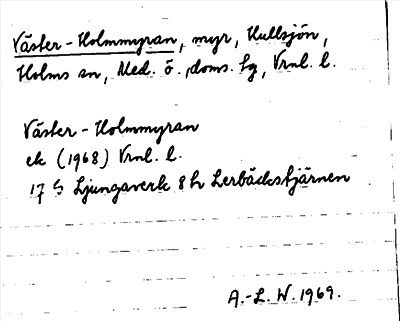 Väster-Holmmyran, myr, Hullsjön,
Holms sn, Med. ö., doms. tg, Vrnl. l.
Väster-Holmmyran
ek (1968) Vrnl. l.
17 G Ljungaverk 8 h Lerbäckstjärnen
A.-L. W. 1969.